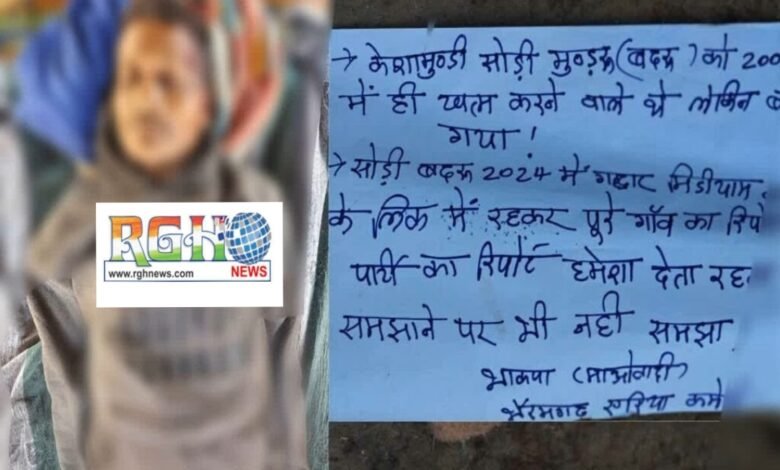 RGH
NEWS
www.rghnews.com
→ केशामुण्डी सोड़ी मुण्ड़रू (बदरू) को 200
में ही खत्म करने वाले थे लेकिन
गया!
→ सोड़ी बदरू 2024 में गद्दार मिडीयाम
के लिंक में रहकर पूरे गाँव का रिप
पार्टी का रिपोर्ट हमेशा देता रह
समझाने पर भी नही समझा
भाकपा (माओवादी)
भैरमगढ़ एरिया कमे